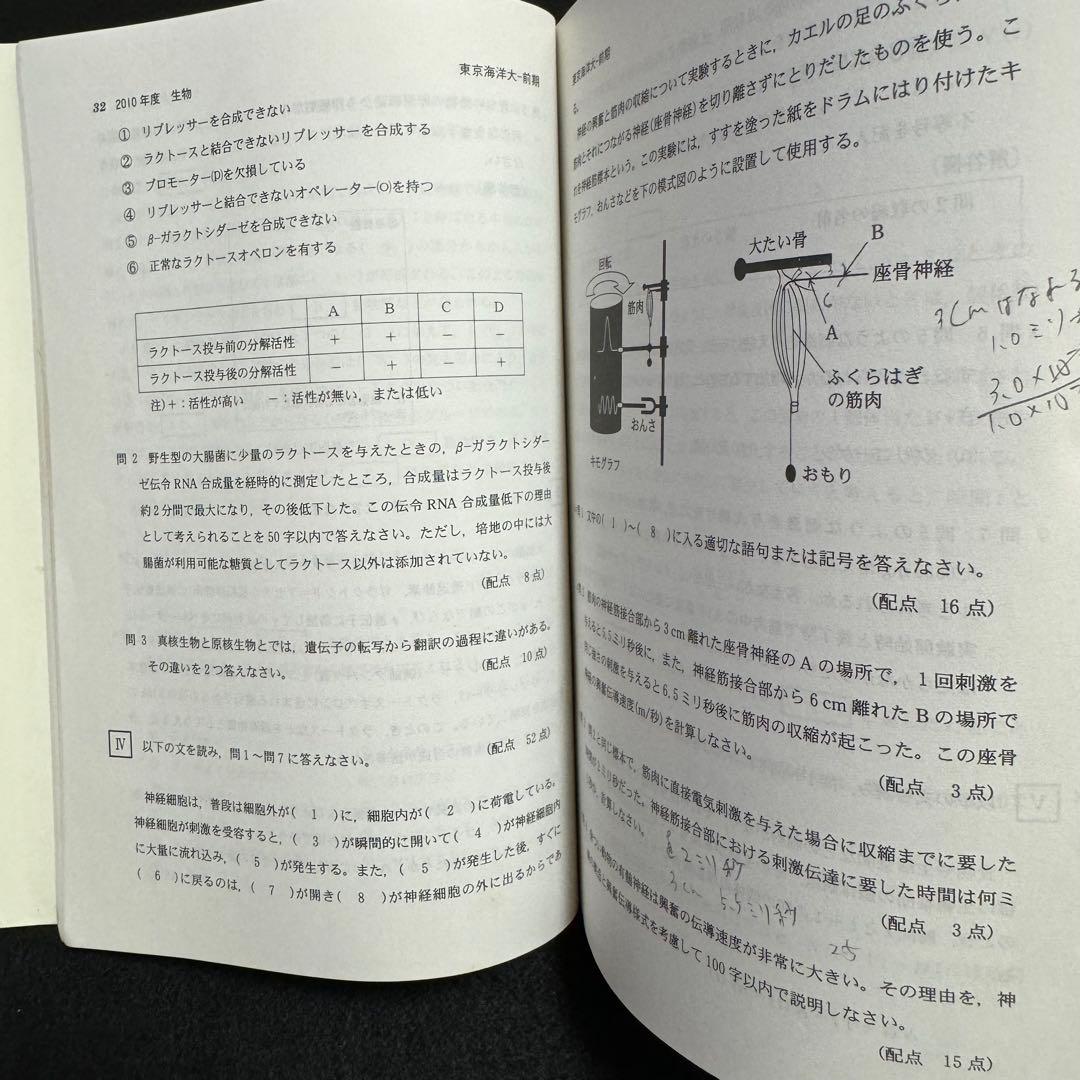 32 2010年度 生物
東京海洋大-前期
① リプレッサーを合成できない
② ラクトースと結合できないリプレッサーを合成する
③ プロモーター(P)を欠損している
④ リプレッサーと結合できないオペレーター(O)を持つ
⑤ β-ガラクトシダーゼを合成できない
⑥ 正常なラクトースオペロンを有する
A B C D
ラクトース投与前の分解活性 + + − −
ラクトース投与後の分解活性 − + − +
注)+:活性が高い −:活性が無い,または低い
問2 野生型の大腸菌に少量のラクトースを与えたときの,β-ガラクトシダー
ゼ伝令RNA合成量を経時的に測定したところ,合成量はラクトース投与後
約2分間で最大になり,その後低下した。この伝令RNA合成量低下の理由
として考えられることを50字以内で答えなさい。ただし,培地の中には大
腸菌が利用可能な糖質としてラクトース以外は添加されていない。
(配点 8点)
問3 真核生物と原核生物とでは,遺伝子の転写から翻訳の過程に違いがある。
その違いを2つ答えなさい。
(配点 10点)
Ⅳ 以下の文を読み,問1〜問7に答えなさい。
(配点 52点)
神経細胞は,普段は細胞外が( 1 )に,細胞内が( 2 )に荷電している。
神経細胞が刺激を受容すると,( 3 )が瞬間的に開いて( 4 )が神経細胞内
に大量に流れ込み,( 5 )が発生する。また,( 5 )が発生した後,すぐに
( 6 )に戻るのは,( 7 )が開き( 8 )が神経細胞の外に出るからであ
東京海洋大-前期
る。
神経の興奮と筋肉の収縮について実験するときに,カエルの足のふくら
筋肉とそれにつながる神経(座骨神経)を切り離さずにとりだしたものを使う。こ
れを神経筋標本という。この実験には,すすを塗った紙をドラムにはり付けたキ
モグラフ,おんさなどを下の模式図のように設置して使用する。
回転
筋肉
おんさ
キモグラフ
大たい骨
B
座骨神経
C
A
ふくらはぎ
の筋肉
おもり
3cm
1.0ミリ
問1 文中の( 1 )〜( 8 )に入る適切な語句または記号を答えなさい。
(配点 16点)
問2 筋肉の神経筋接合部から3cm離れた座骨神経のAの場所で,1回刺激を
与えると5.5ミリ秒後に,また,神経筋接合部から6cm離れたBの場所で
同じ強さの刺激を与えると6.5ミリ秒後に筋肉の収縮が起こった。この座骨
神経の興奮伝導速度(m/秒)を計算しなさい。
(配点 3点)
問3 問2と同じ標本で,筋肉に直接電気刺激を与えた場合に収縮までに要した
時間が2ミリ秒だった。神経筋接合部における刺激伝達に要した時間は何ミ
リ秒か,計算しなさい。
(配点 3点)
2ミリ秒
3cm 5.5ミリ秒
2.5
動物の有髄神経は興奮の伝導速度が非常に大きい。その理由を,神
構造と興奮伝導様式を考慮して100字以内で説明しなさい。
(配点 15点)